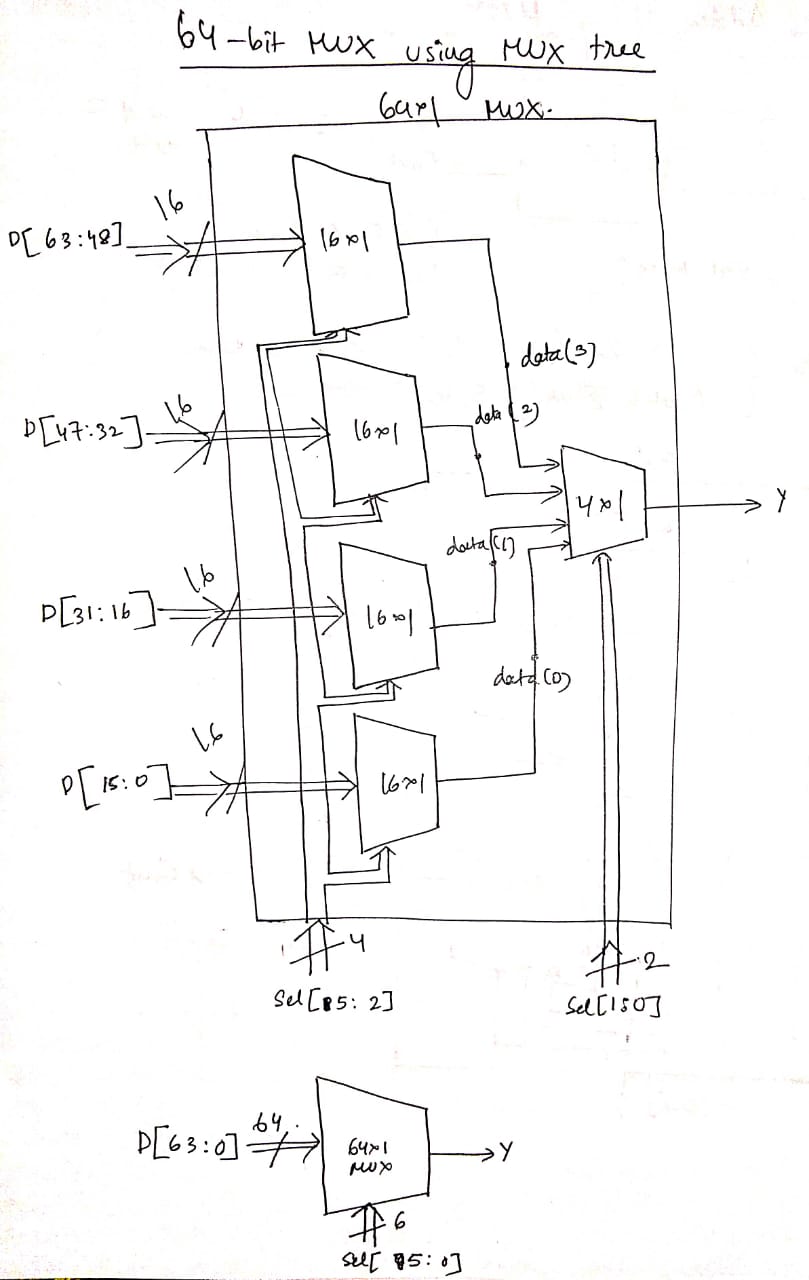 64-bit MUX using MUX tree
64x1 MUX.
16
D[63:48]
16x1
data(3)
16
D[47:32]
16x1
data(2)
4x1
Y
data(1)
16
D[31:16]
16x1
data(0)
16
D[15:0]
16x1
4
2
Sel[5:2]
Sel[1:0]
64
D[63:0]
64x1
MUX
Y
6
Sel[5:0]